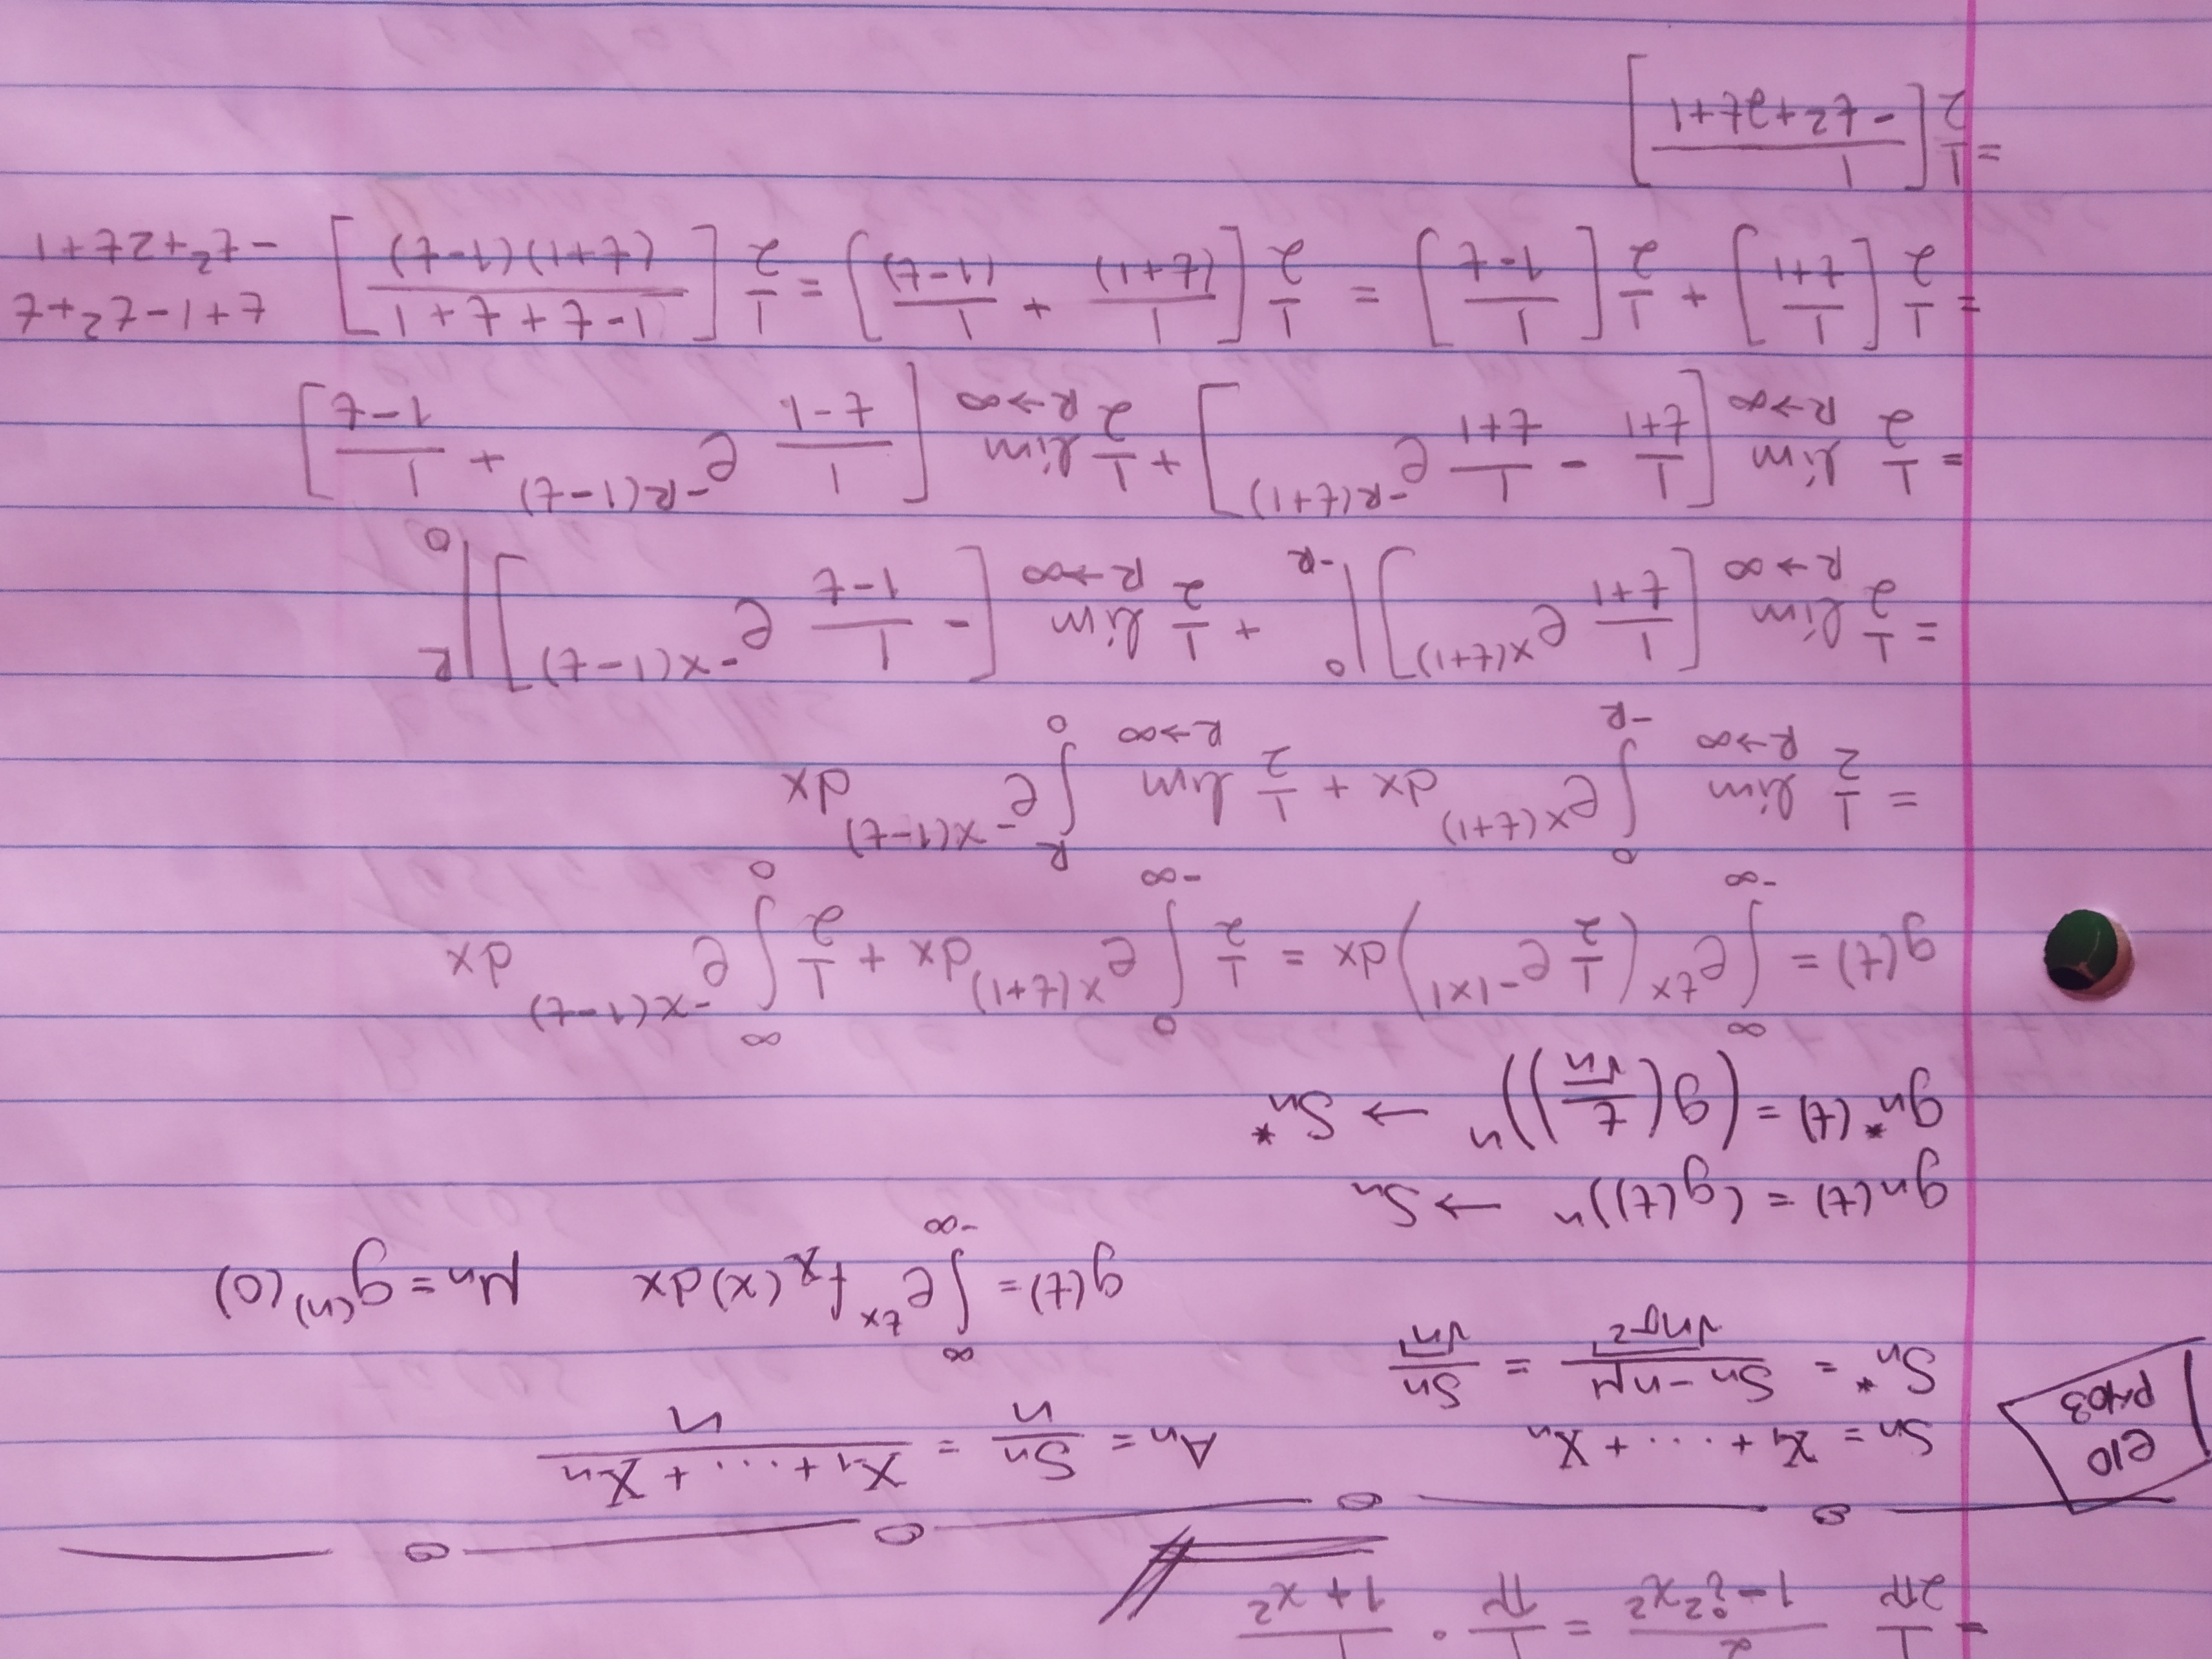 = 1/2π 2/(1-i²x²) = 1/π · 1/(1+x²)
e10 p403
Sn = X1+...+Xn   An = Sn/n = (X1+...+Xn)/n
Sn* = (Sn-nμ)/√(nσ²) = Sn/√n   g(t) = ∫_{-∞}^{∞} e^{tx} fX(x)dx   μn = g^{(n)}(0)
gn(t) = (g(t))^n → Sn
gn*(t) = (g(t/√n))^n → Sn*
g(t) = ∫_{-∞}^{∞} e^{tx} (1/2 e^{-|x|}) dx = 1/2 ∫_{-∞}^{0} e^{x(t+1)} dx + 1/2 ∫_{0}^{∞} e^{-x(1-t)} dx
= 1/2 lim_{R→∞} ∫_{-R}^{0} e^{x(t+1)} dx + 1/2 lim_{R→∞} ∫_{0}^{R} e^{-x(1-t)} dx
= 1/2 lim_{R→∞} [1/(t+1) e^{x(t+1)}]|_{-R}^{0} + 1/2 lim_{R→∞} [-1/(1-t) e^{-x(1-t)}]|_{0}^{R}
= 1/2 lim_{R→∞} [1/(t+1) - 1/(t+1) e^{-R(t+1)}] + 1/2 lim_{R→∞} [1/(t-1) e^{-R(1-t)} + 1/(1-t)]
= 1/2 [1/(t+1)] + 1/2 [1/(1-t)] = 1/2 [1/(t+1) + 1/(1-t)] = 1/2 [(1-t+t+1)/((t+1)(1-t))]   t+1-t²+t
-t²+2t+1
= 1/2 [1/(-t²+2t+1)]